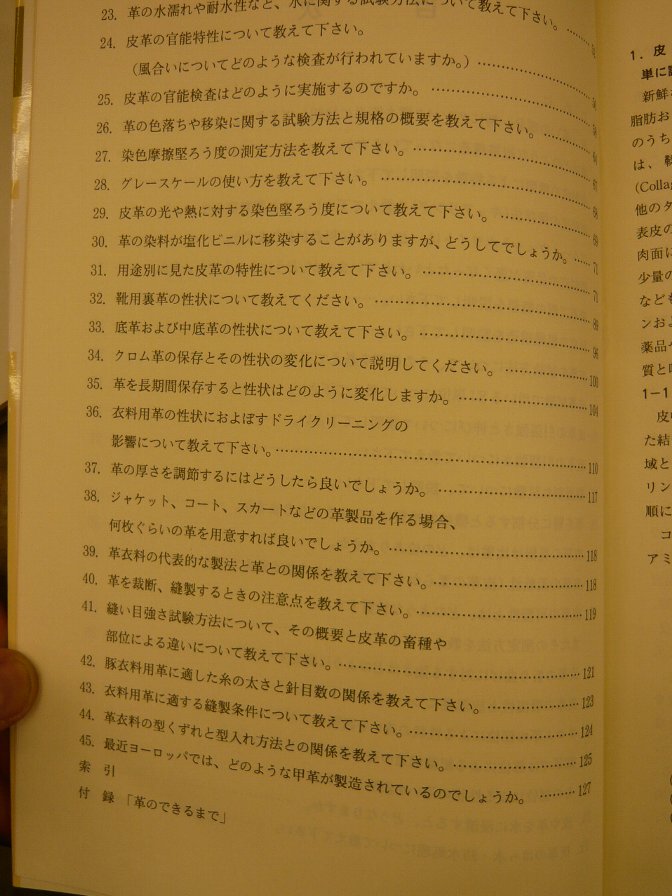 23. 革の水濡れや耐水性など、水に関する試験方法について教えて下さい。
24. 皮革の官能特性について教えて下さい。
（風合いについてどのような検査が行われていますか。）
25. 皮革の官能検査はどのように実施するのですか。
26. 革の色落ちや移染に関する試験方法と規格の概要を教えて下さい。
27. 染色摩擦堅ろう度の測定方法を教えて下さい。
28. グレースケールの使い方を教えて下さい。
29. 皮革の光や熱に対する染色堅ろう度について教えて下さい。
30. 革の染料が塩化ビニルに移染することがありますが、どうしてでしょうか。……71
31. 用途別に見た皮革の特性について教えて下さい。……71
32. 靴用裏革の性状について教えてください。
33. 底革および中底革の性状について教えて下さい。
34. クロム革の保存とその性状の変化について説明してください。……100
35. 革を長期間保存すると性状はどのように変化しますか。……104
36. 衣料用革の性状におよぼすドライクリーニングの
影響について教えて下さい。……110
37. 革の厚さを調節するにはどうしたら良いでしょうか。……117
38. ジャケット、コート、スカートなどの革製品を作る場合、
何枚ぐらいの革を用意すれば良いでしょうか。……118
39. 革衣料の代表的な製法と革との関係を教えて下さい。……118
40. 革を裁断、縫製するときの注意点を教えて下さい。……119
41. 縫い目強さ試験方法について、その概要と皮革の畜種や
部位による違いについて教えて下さい。……121
42. 豚衣料用革に適した糸の太さと針目数の関係を教えて下さい。……123
43. 衣料用革に適する縫製条件について教えて下さい。……124
44. 革衣料の型くずれと型入れ方法との関係を教えて下さい。……125
45. 最近ヨーロッパでは、どのような甲革が製造されているのでしょうか。……127
索 引
付 録「革のできるまで」
1. 皮
新鮮
脂肪お
のうち
は、
(Colla
他のタ
表皮の
肉面に
少量の
なども
ンおよ
薬品
質と
1-1
皮
た結
域と
リン
順に
コ
アミ